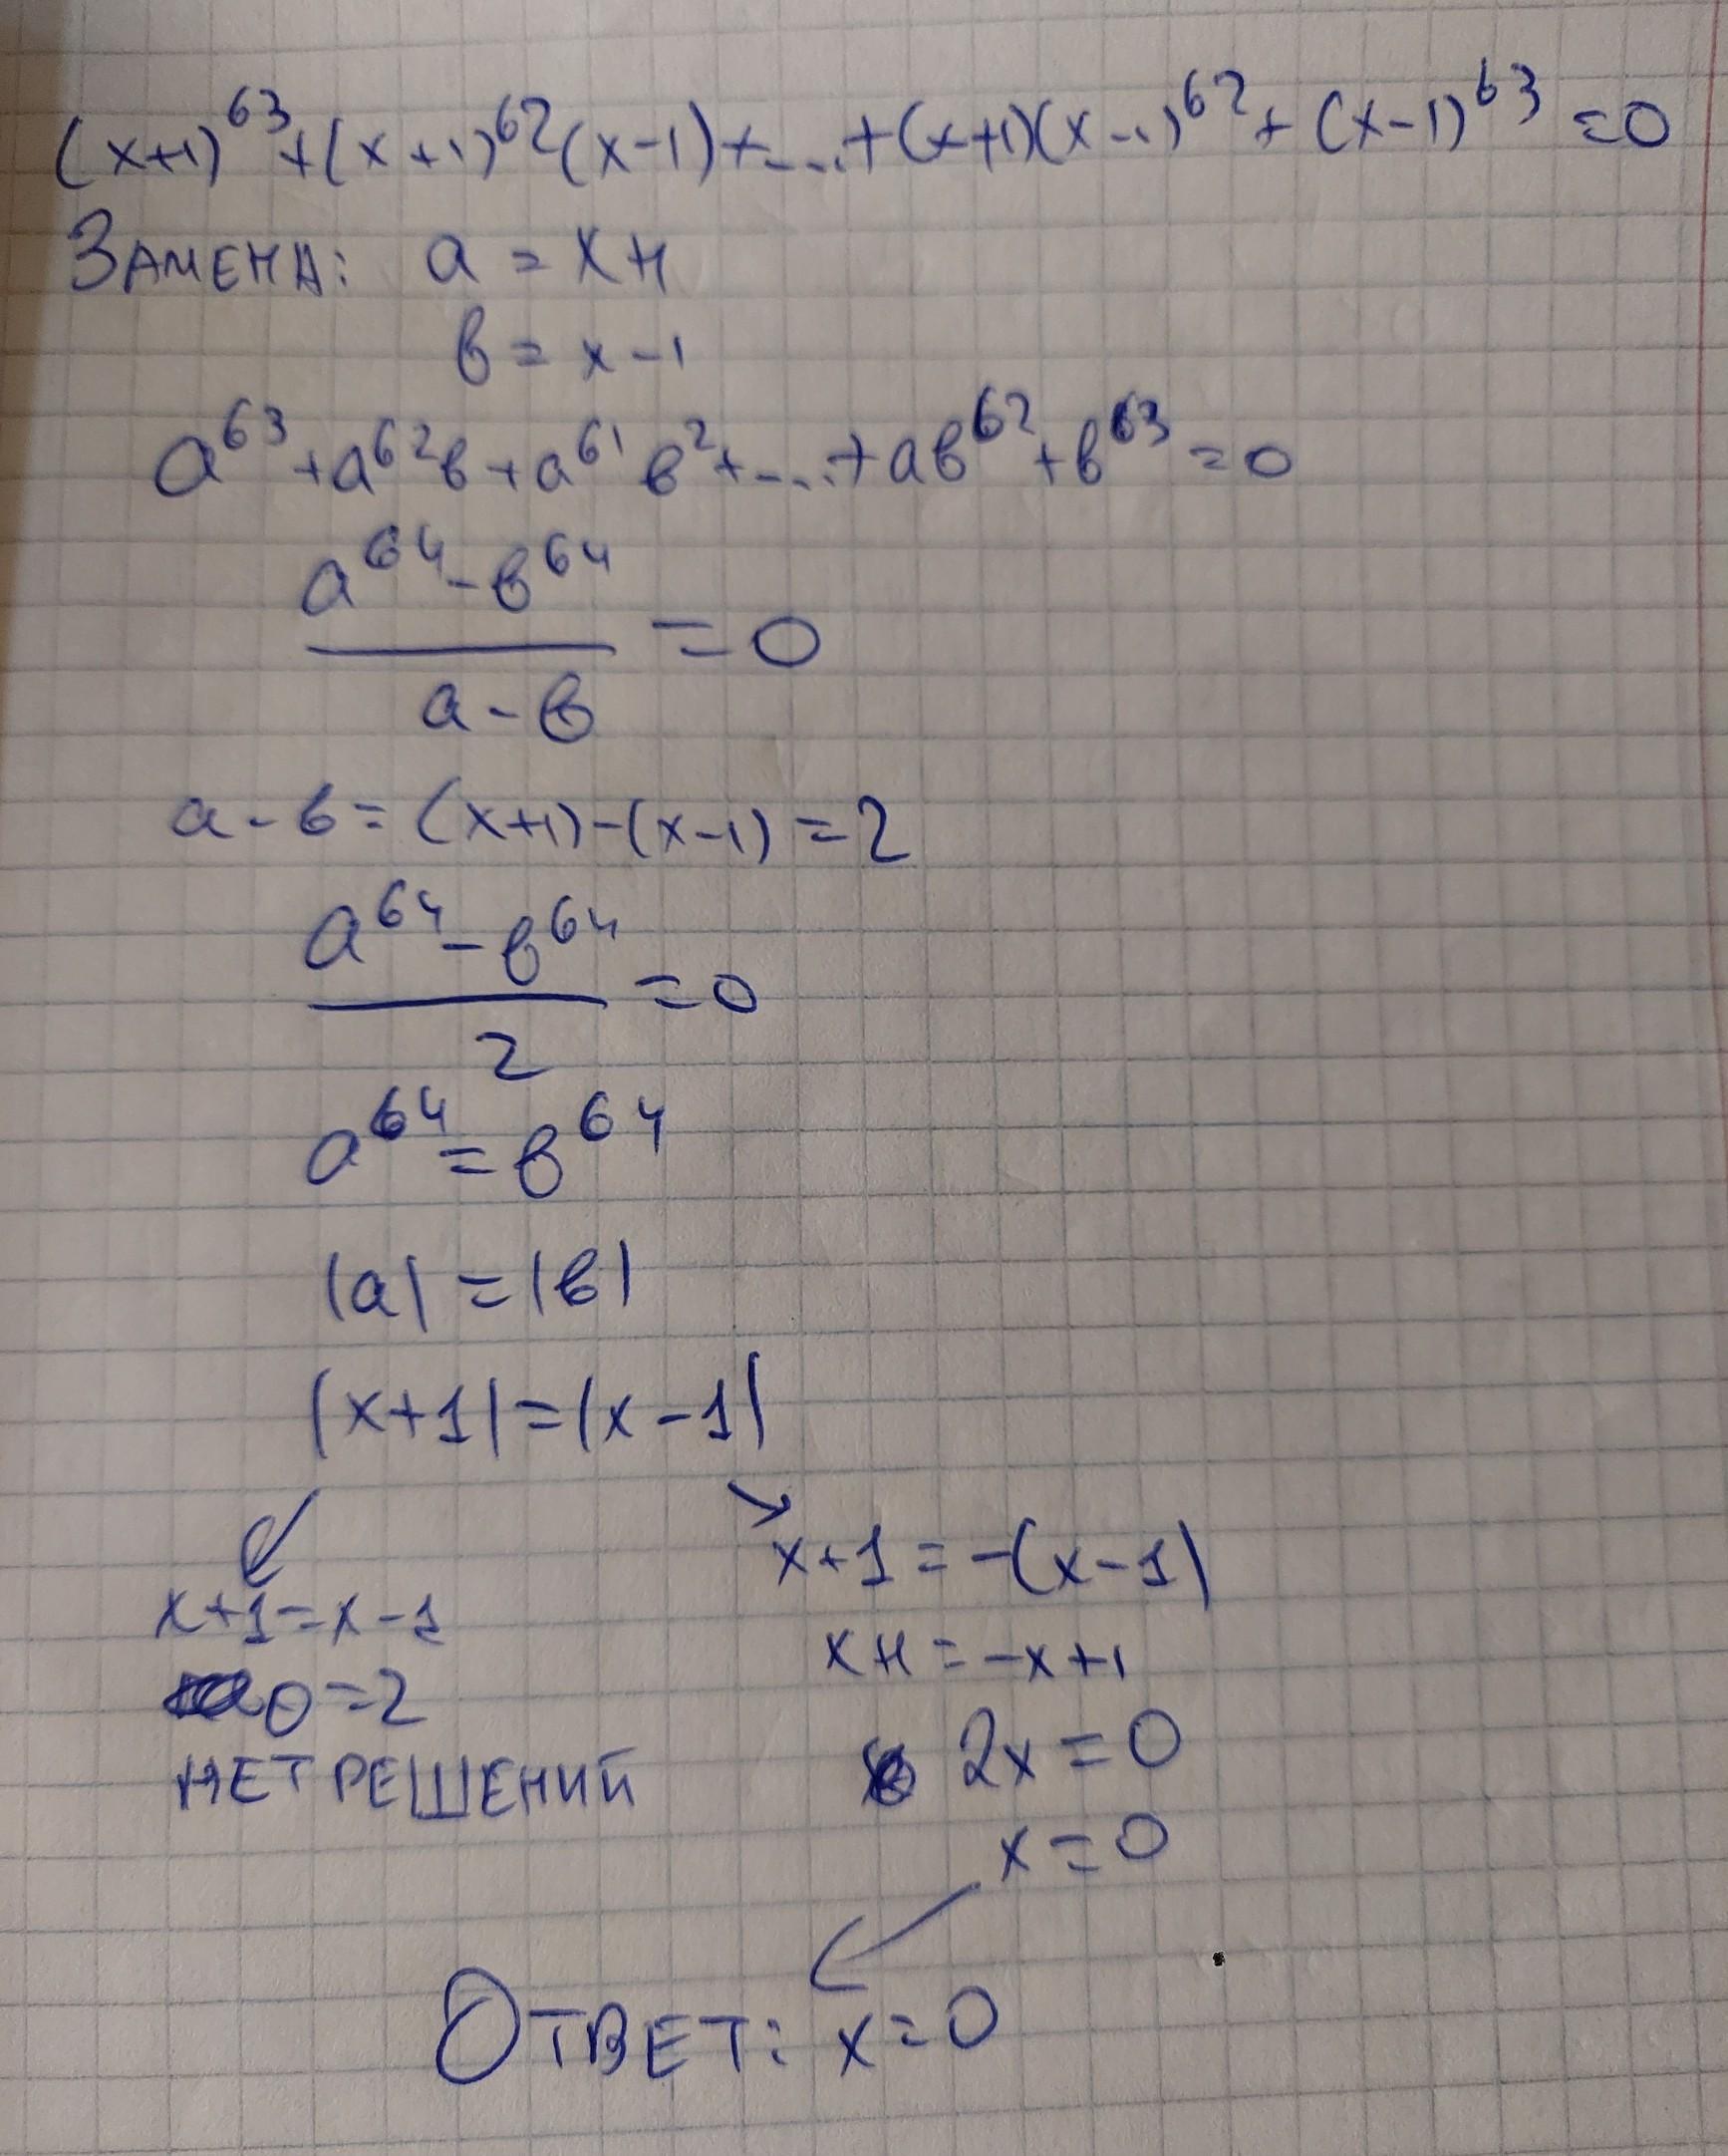 (x+1)^63+(x+1)^62(x-1)+...+(x+1)(x-1)^62+(x-1)^63=0
ЗАМЕНА: a = x+1
b = x-1
a^63+a^62b+a^61b^2+...+ab^62+b^63=0
a^64-b^64
/ a-b =0
a-b=(x+1)-(x-1)=2
a^64-b^64
/ 2 =0
a^64=b^64
|a|=|b|
|x+1|=|x-1|
x+1=x-1
0=2
НЕТ РЕШЕНИЙ
x+1=-(x-1)
x+1=-x+1
2x=0
x=0
ОТВЕТ: x=0